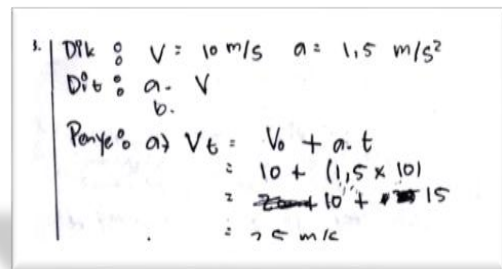 3. Dik : V = 10 m/s a = 1,5 m/s²
Dit : a. V
b.
Penye : a) Vt = Vo + a. t
= 10 + (1,5 x 10)
= 10 + 15
= 25 m/s